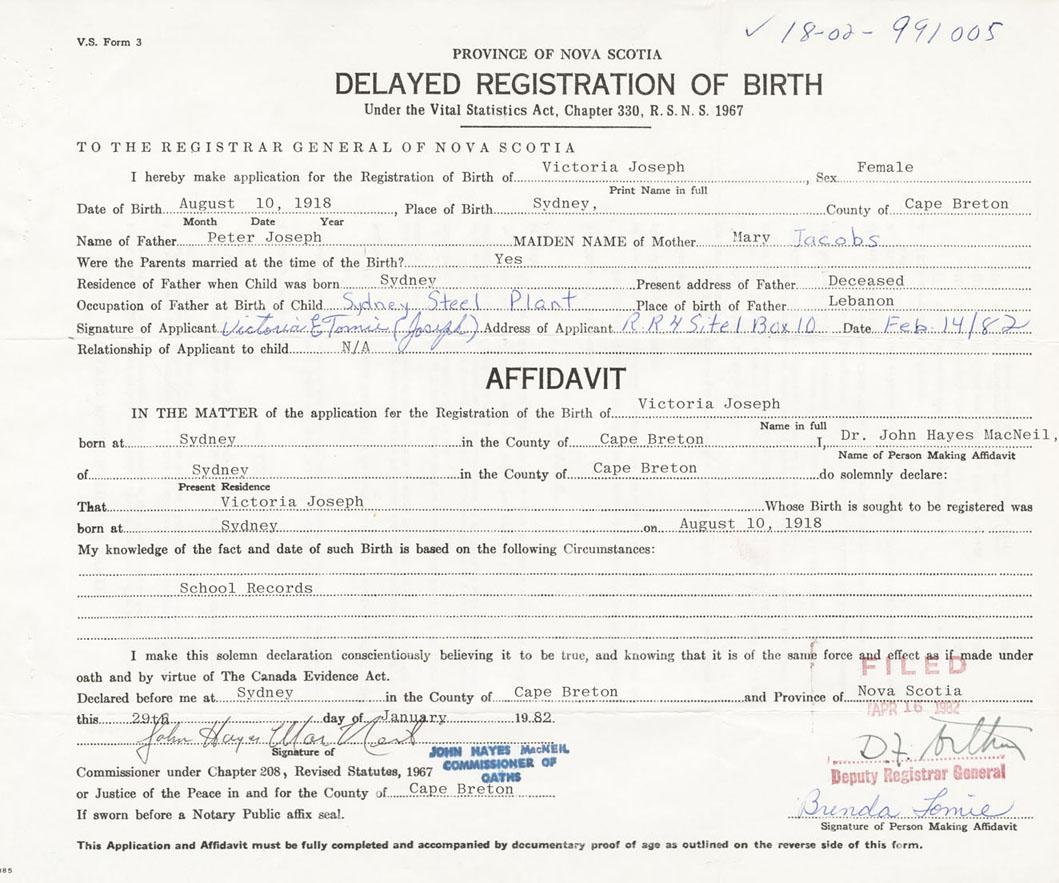 V.S. Form 3
✓ 18-02-991005
PROVINCE OF NOVA SCOTIA
DELAYED REGISTRATION OF BIRTH
Under the Vital Statistics Act, Chapter 330, R.S.N.S. 1967
TO THE REGISTRAR GENERAL OF NOVA SCOTIA
I hereby make application for the Registration of Birth of Victoria Joseph, Sex Female
Print Name in full
Date of Birth August 10, 1918, Place of Birth Sydney, County of Cape Breton
Month Date Year
Name of Father Peter Joseph MAIDEN NAME of Mother Mary Jacobs
Were the Parents married at the time of the Birth? Yes
Residence of Father when Child was born Sydney Present address of Father Deceased
Occupation of Father at Birth of Child Sydney Steel Plant Place of birth of Father Lebanon
Signature of Applicant Victoria E Tomie (Joseph) Address of Applicant R.R 4 Site 1 Box 10 Date Feb. 14/82
Relationship of Applicant to child N/A
AFFIDAVIT
IN THE MATTER of the application for the Registration of the Birth of Victoria Joseph
Name in full
born at Sydney in the County of Cape Breton I, Dr. John Hayes MacNeil,
Name of Person Making Affidavit
of Sydney in the County of Cape Breton do solemnly declare:
Present Residence
That Victoria Joseph Whose Birth is sought to be registered was
born at Sydney on August 10, 1918
My knowledge of the fact and date of such Birth is based on the following Circumstances:
School Records
I make this solemn declaration conscientiously believing it to be true, and knowing that it is of the same force and effect as if made under
oath and by virtue of The Canada Evidence Act.
FILED
Declared before me at Sydney in the County of Cape Breton and Province of Nova Scotia
APR 16 1982
this 29th day of January 1982.
John Hayes MacNeil
Signature of
JOHN HAYES MacNEIL
COMMISSIONER OF
OATHS
Deputy Registrar General
Commissioner under Chapter 208, Revised Statutes, 1967
or Justice of the Peace in and for the County of Cape Breton
Brenda Tomie
If sworn before a Notary Public affix seal.
Signature of Person Making Affidavit
This Application and Affidavit must be fully completed and accompanied by documentary proof of age as outlined on the reverse side of this form.